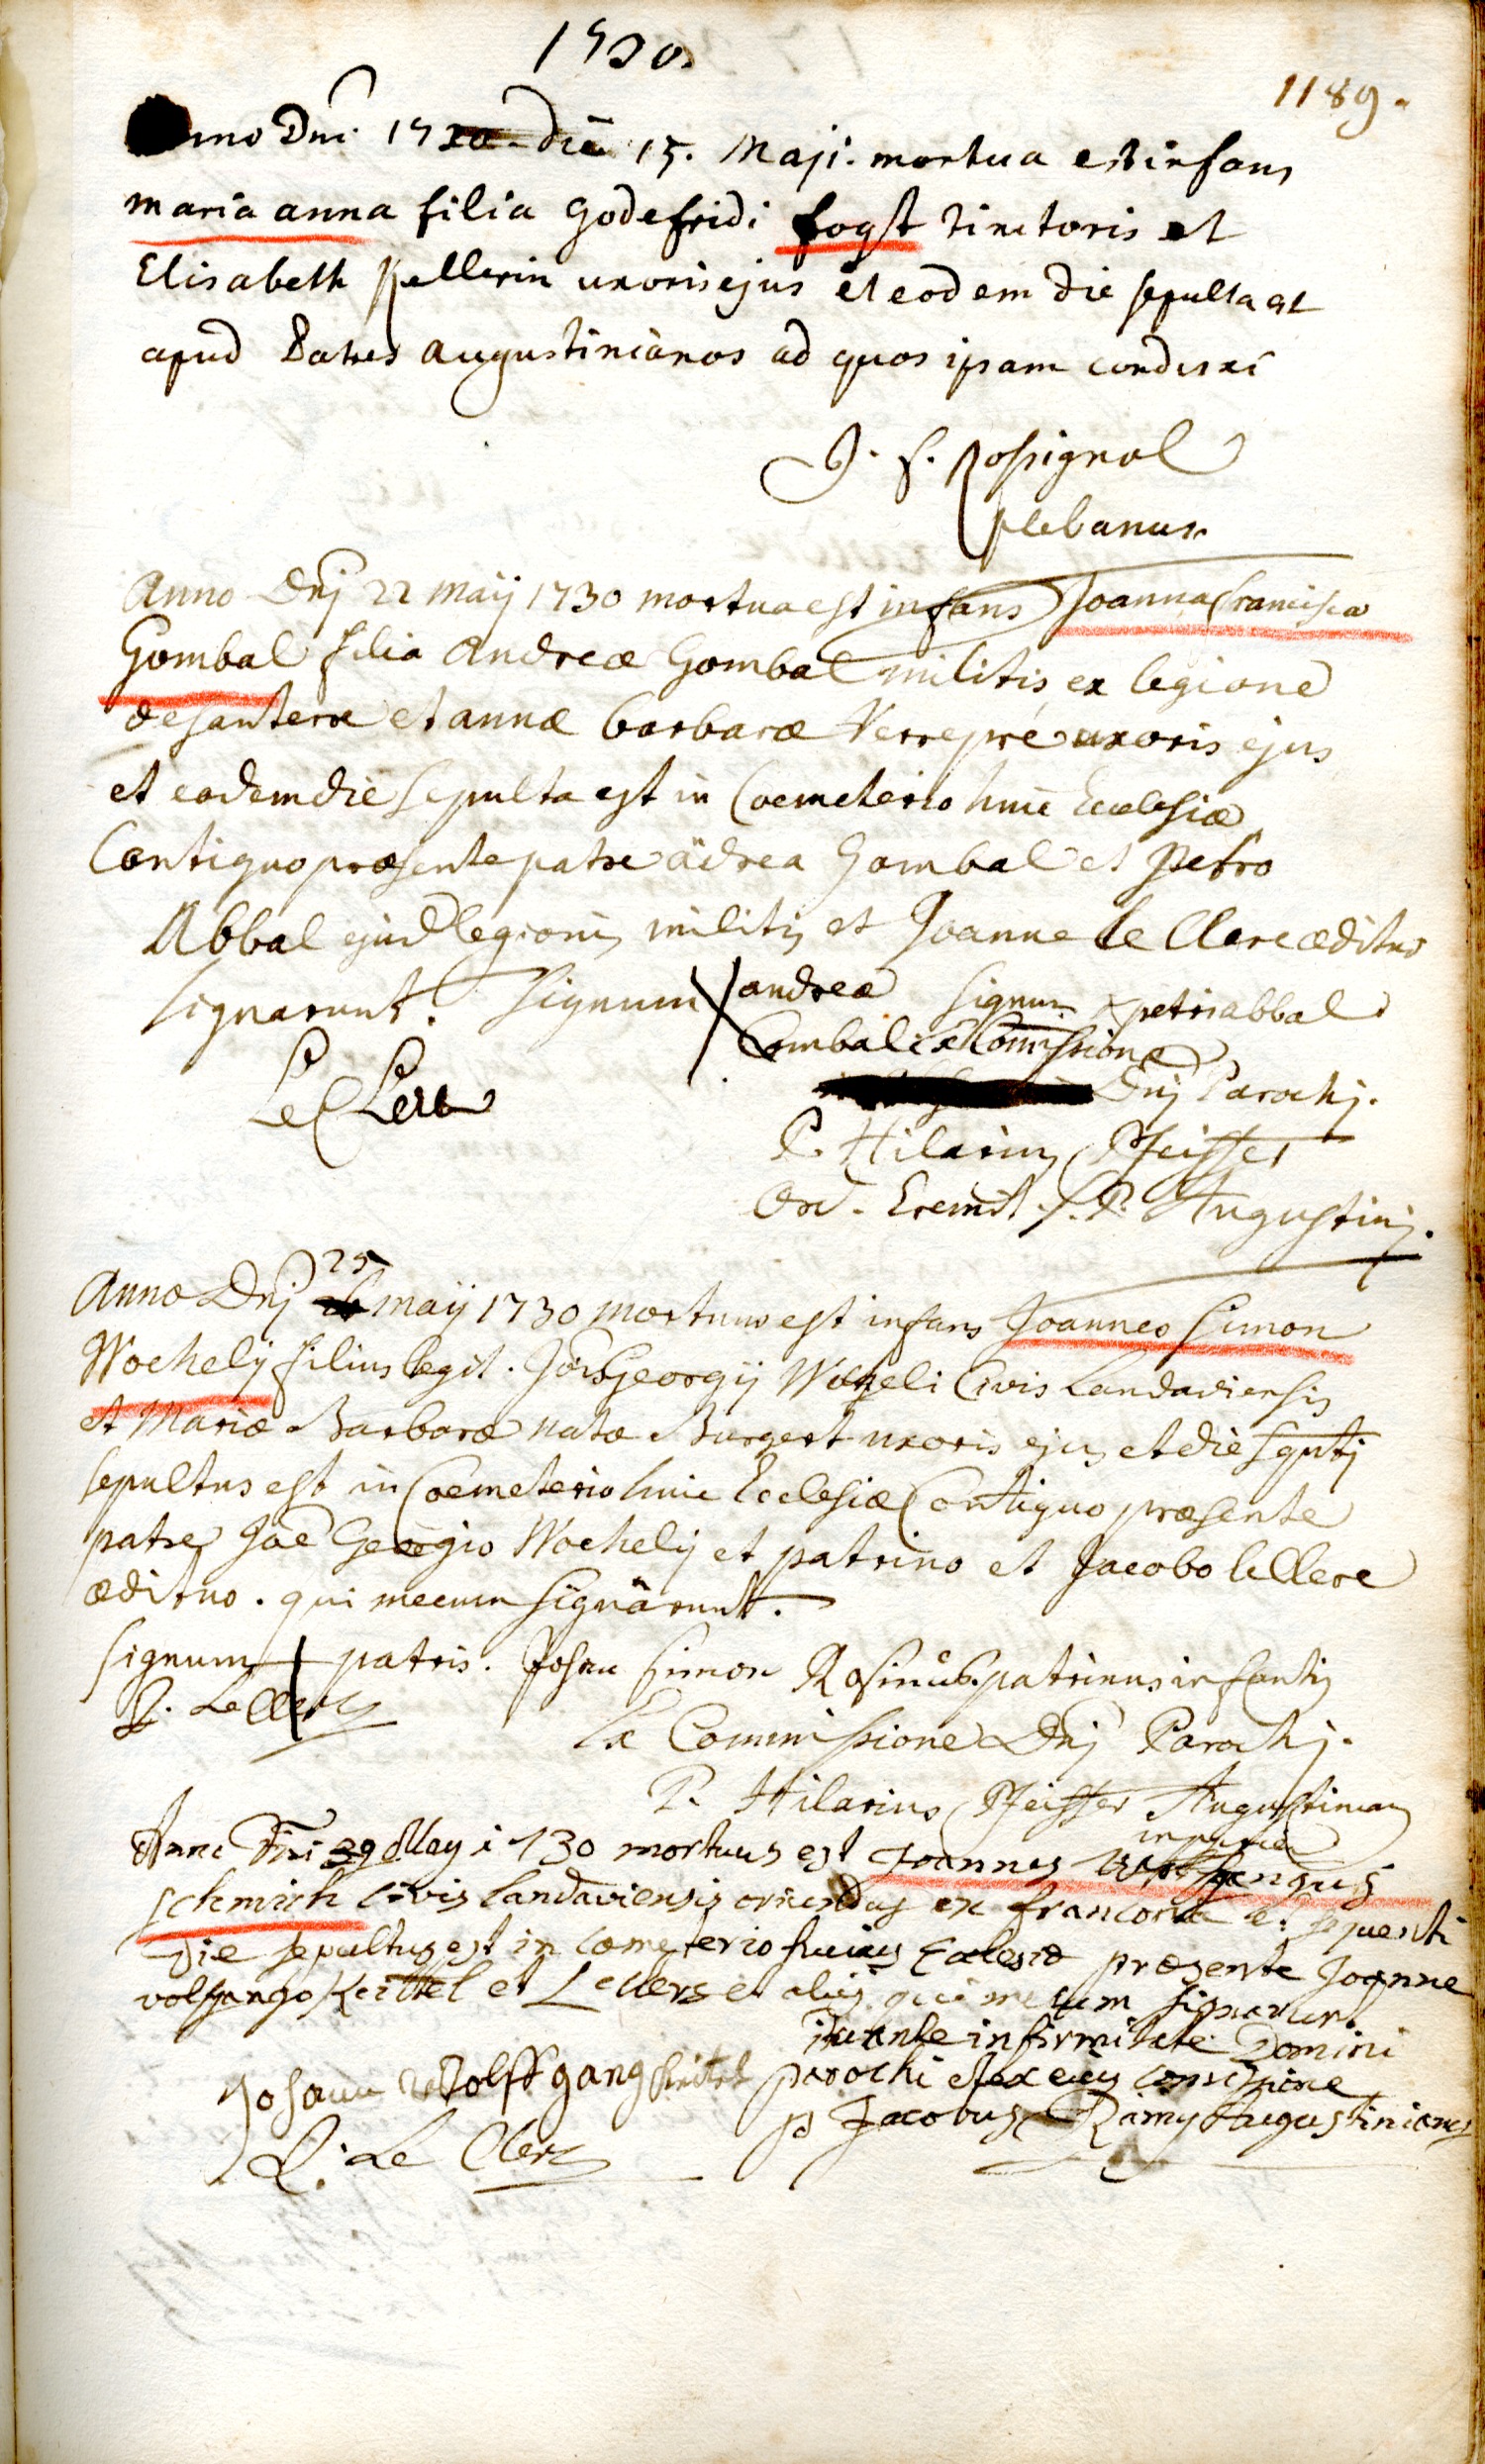 1730
1189.
Anno Dni 1730 die 15. Maji. mortua est infans
maria anna filia Godefridi fogst tinctoris et
Elisabeth Kellerin uxoris ejus et eodem die sepulta est
apud Patres augustinianos ad quos ipsam conduxi
J. f. Rossignol
plebanus.
Anno Dnj 22 maij 1730 mortua est infans Joanna francisca
Gombal filia Andreæ Gombal militis ex legione
desanterre et annæ barbaræ Verrepre uxoris ejus
et eodem die sepulta est in Coemeterio huic Ecclesiæ
Contiguo præsente patre ādrea Gombal et Petro
Abbal ejusd legionis militis et Joanne le Clere ædituo
signarunt. signum andreæ signum x petri abbal
Gombal ex Commissione
Le Clere Dnj Parochj.
P. Hilarius Pfeiffer
Ord. Eremit. S. P. Augustinj.
Anno Dnj 25 maij 1730 mortuus est infans Joannes Simon
Wochelij filius legit. Jōis Georgij Wocheli Civis Landaviensis
et Mariæ Barbaræ natæ Burgert uxoris ejus et die sequtj
sepultus est in Coemeterio huic Ecclesiæ Contiguo præsente
patre Joē Georgio Wochelij et patrino et Jacobo le Clere
ædituo. qui mecum signârunt.
signum patris. Johan Simon patrinus infantis
J. Le Clerc Ex Commissione Dnj Parochj.
P. Hilarius Pfeiffer Augustinian
Anno Dni 29 May i730 mortuus est Joannes Wolfgangus
schmich civis landaviensis oriundus ex franconia et sequenti
die sepultus est in cœmeterio huius Eclesiæ præsente Joanne
volfgango Keittel et Leclers et aliis qui mecum signarunt
durante infirmitate Domini
Johann Wolffgang Keittel parochi et ex eius comissione
J. Le Clerc p Jacobus Ramy Augustinianus